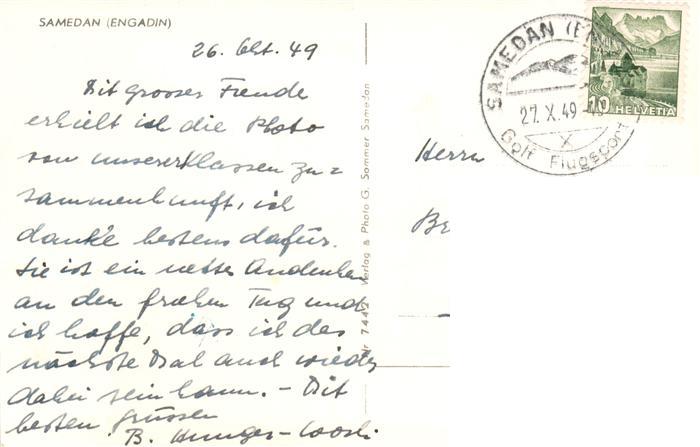 SAMEDAN (ENGADIN)
26. Okt. 49
Mit grosser Freude
erhielt ich die Photo
von unserer Klassen zu=
sammenkunft, ich
danke bestens dafür.
Sie ist ein nettes Andenken
an den frohen Tag und
ich hoffe, dass ich das
nächste Mal auch wieder
dabei sein kann. - Mit
besten Grüssen
B.
Nr 7442 Verlag & Photo G. Sommer Samedan
SAMEDAN
27. X. 49
X
Golf Flugsport
10 HELVETIA
Herrn
Be